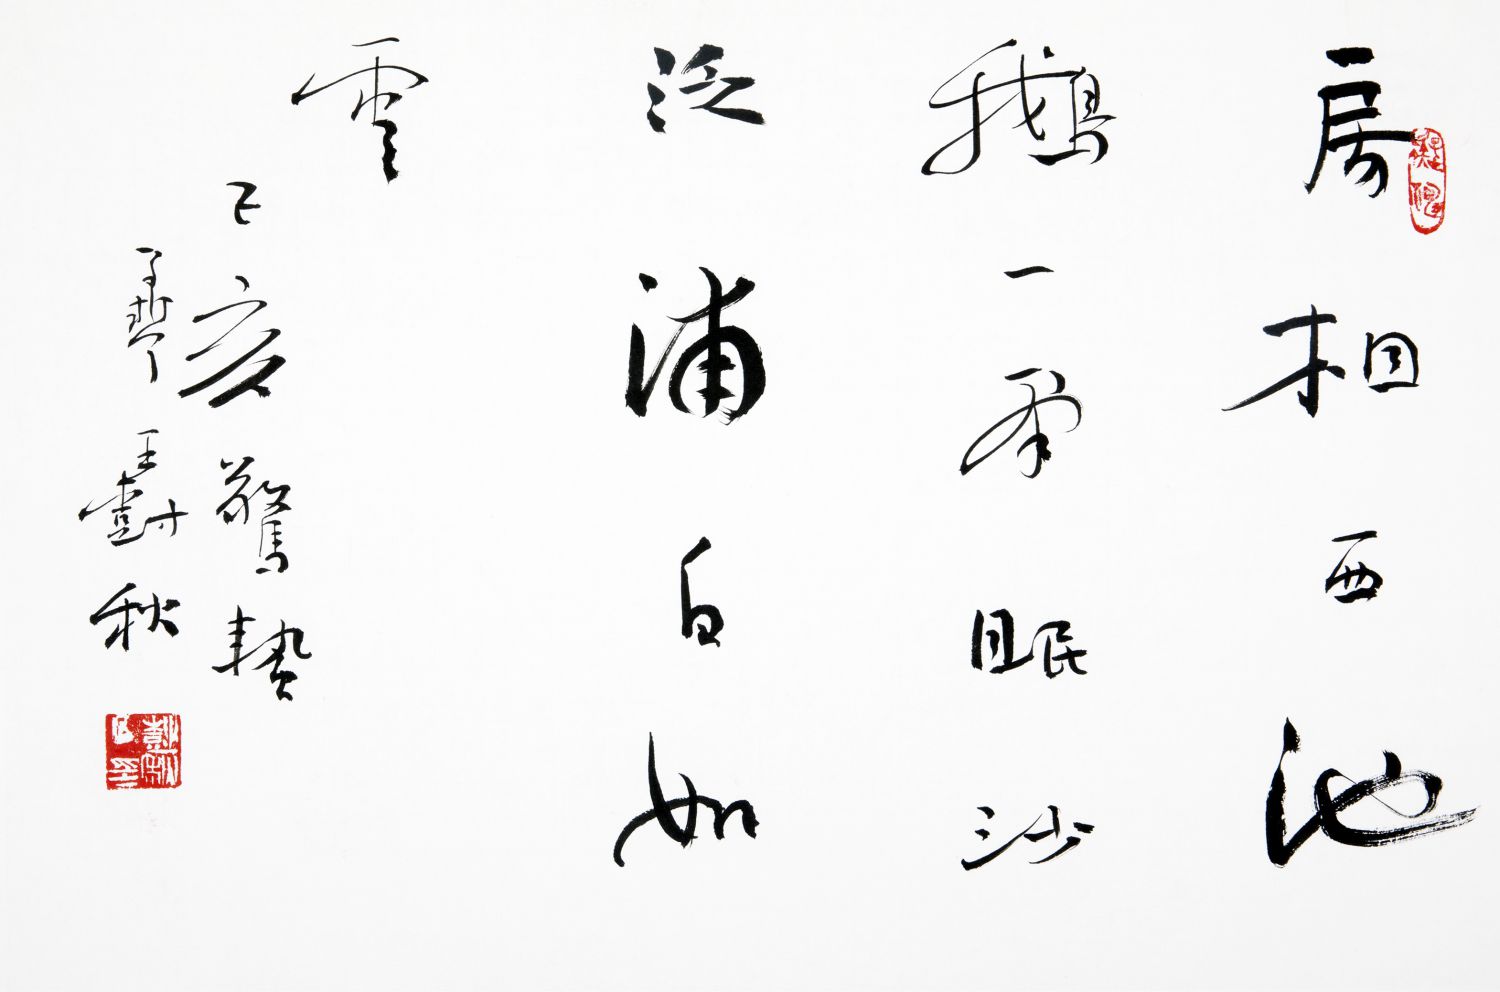 房相西池
鵝一羣眠沙
泛浦白如
雲
己亥驚蟄
王 秋